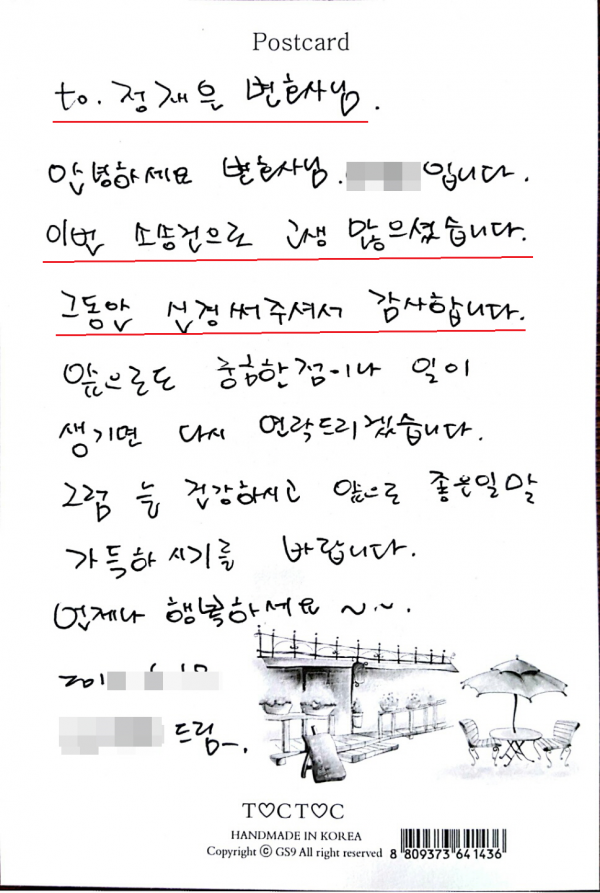 Postcard
to. 정재은 변호사님.
안녕하세요 변호사님. 입니다.
이번 소송건으로 고생 많으셨습니다.
그동안 신경써주셔서 감사합니다.
앞으로도 궁금한점이나 일이
생기면 다시 연락드리겠습니다.
그럼 늘 건강하시고 앞으로 좋은일만
가득하시기를 바랍니다.
언제나 행복하세요 ~.~.
201
드림_.
T♡CT♡C
HANDMADE IN KOREA
Copyright ⓒ GS9 All right reserved
8 809373 641436